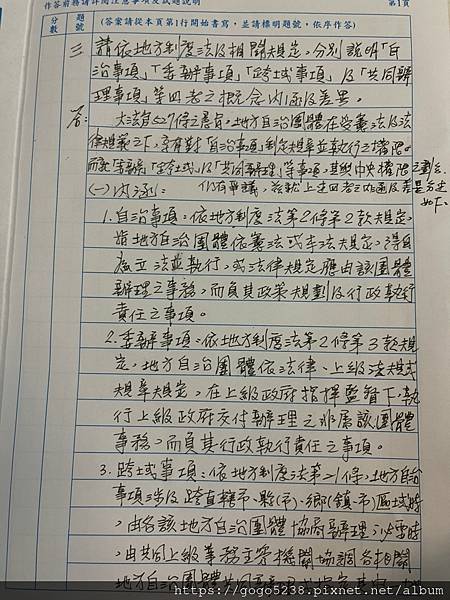 作答前務請詳閱注意事項及試題說明 第1頁
分數 題號 (答案請從本頁第1行開始書寫,並請標明題號,依序作答)
三 請依地方制度法及相關規定,分別說明「自
治事項」「委辦事項」「跨域事項」及「共同辦
理事項」等四者之概念內涵及差異。
答: 地方自治團體在受憲法及法
律規範之下,享有對「自治事項」制定規章並執行之權限。
而就「委辦」「跨域」及「共同辦理」等事項,其與中央權限之劃分
仍有爭議,茲就上述四者之內涵及差異分述
如下。
(一)內涵:
1.自治事項:依地方制度法第2條第2款規定,
指地方自治團體依憲法或本法規定,得自
為立法並執行,或法律規定應由該團體
辦理之事務,而負其政策規劃及行政執行
責任之事項。
2.委辦事項:依地方制度法第2條第3款規
定,地方自治團體依法律、上級法規或
規章規定,在上級政府指揮監督下,執
行上級政府交付辦理之非屬該團體
事務,而負其行政執行責任之事項。
3.跨域事項:依地方制度法第21條,地方自治
事項涉及跨直轄市、縣(市)、鄉(鎮、市)區域時
,由各該地方自治團體協商辦理;必要時
,由共同上級業務主管機關協調各相關
地方自治團體共同
https://gogo5238.pixnet.net/album